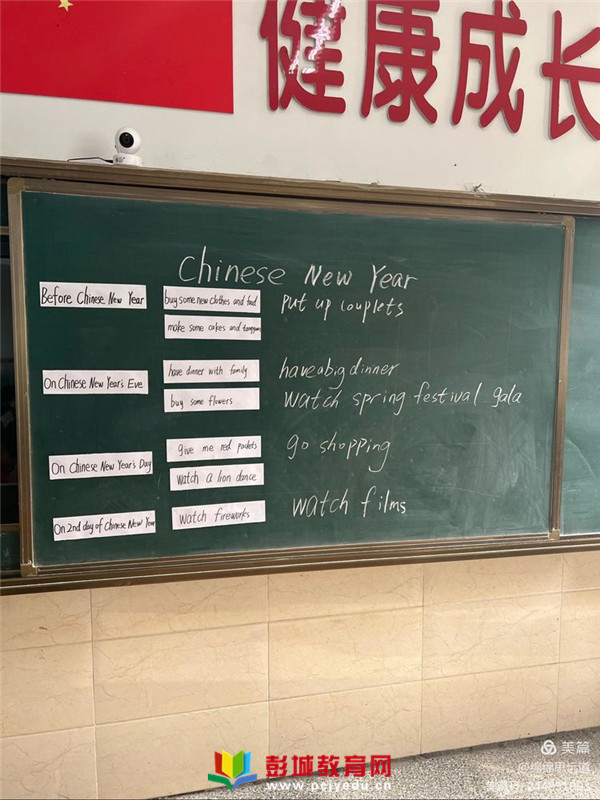 健康成长
Chinese New Year
Before Chinese New Year
buy some new clothes and food
put up couplets
make some cakes and tangyuan
On Chinese New Year's Eve
have dinner with family
have a big dinner
buy some flowers
watch spring festival gala
On Chinese New Year's Day
give me red packets
go shopping
watch a lion dance
On 2nd day of Chinese New Year
watch fireworks
watch films
美篇
彭城教育网
www.pcjyedu.cn